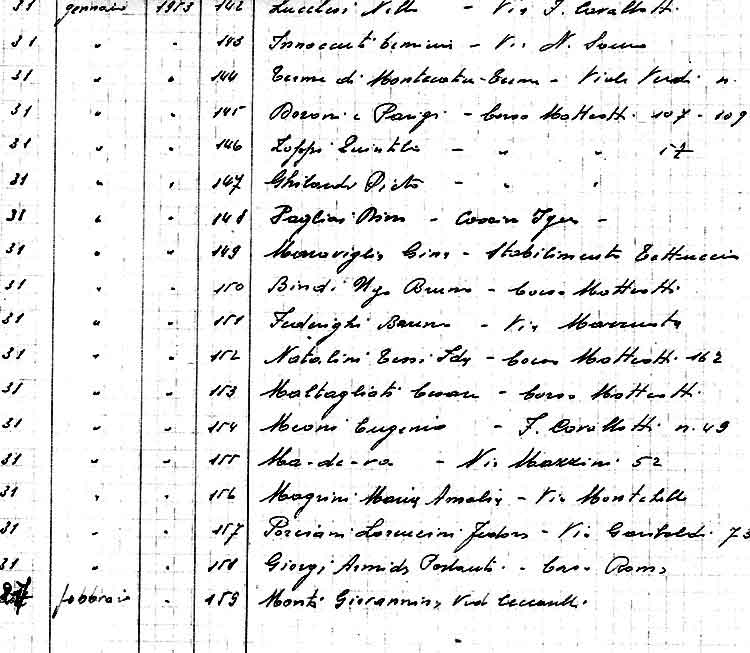 31 gennaio 1953 142 Lucchesi Nello - Via F. Cavallotti
31 " " 143 Innocenti - Via N. Sauro
31 " " 144 Terme di Montecatini-Terme - Viale Verdi n.
31 " " 145 e Parigi - Corso Matteotti 107-109
31 " " 146 Zoppi Quintilio - " "
31 " " 147 Ghilardi - " "
31 " " 148 Pagliai Dino - -
31 " " 149 Meraviglia Gino - Stabilimento Tettuccio
31 " " 150 Bindi Ugo Bruno - Corso Matteotti
31 " " 151 Federighi Bruno - Via
31 " " 152 Natalini Ida - Corso Matteotti 162
31 " " 153 Maltagliati Cesare - Corso Matteotti
31 " " 154 Meoni Eugenio - F. Cavallotti n. 49
31 " " 155 Ma-de-ra - Via Mazzini 52
31 " " 156 Magrini Maria Amalia - Via
31 " " 157 Porciani Lorenzini - Via Garibaldi 73
31 " " 158 Giorgi Armida - Corso Roma
febbraio " 159 Monti Giovannina